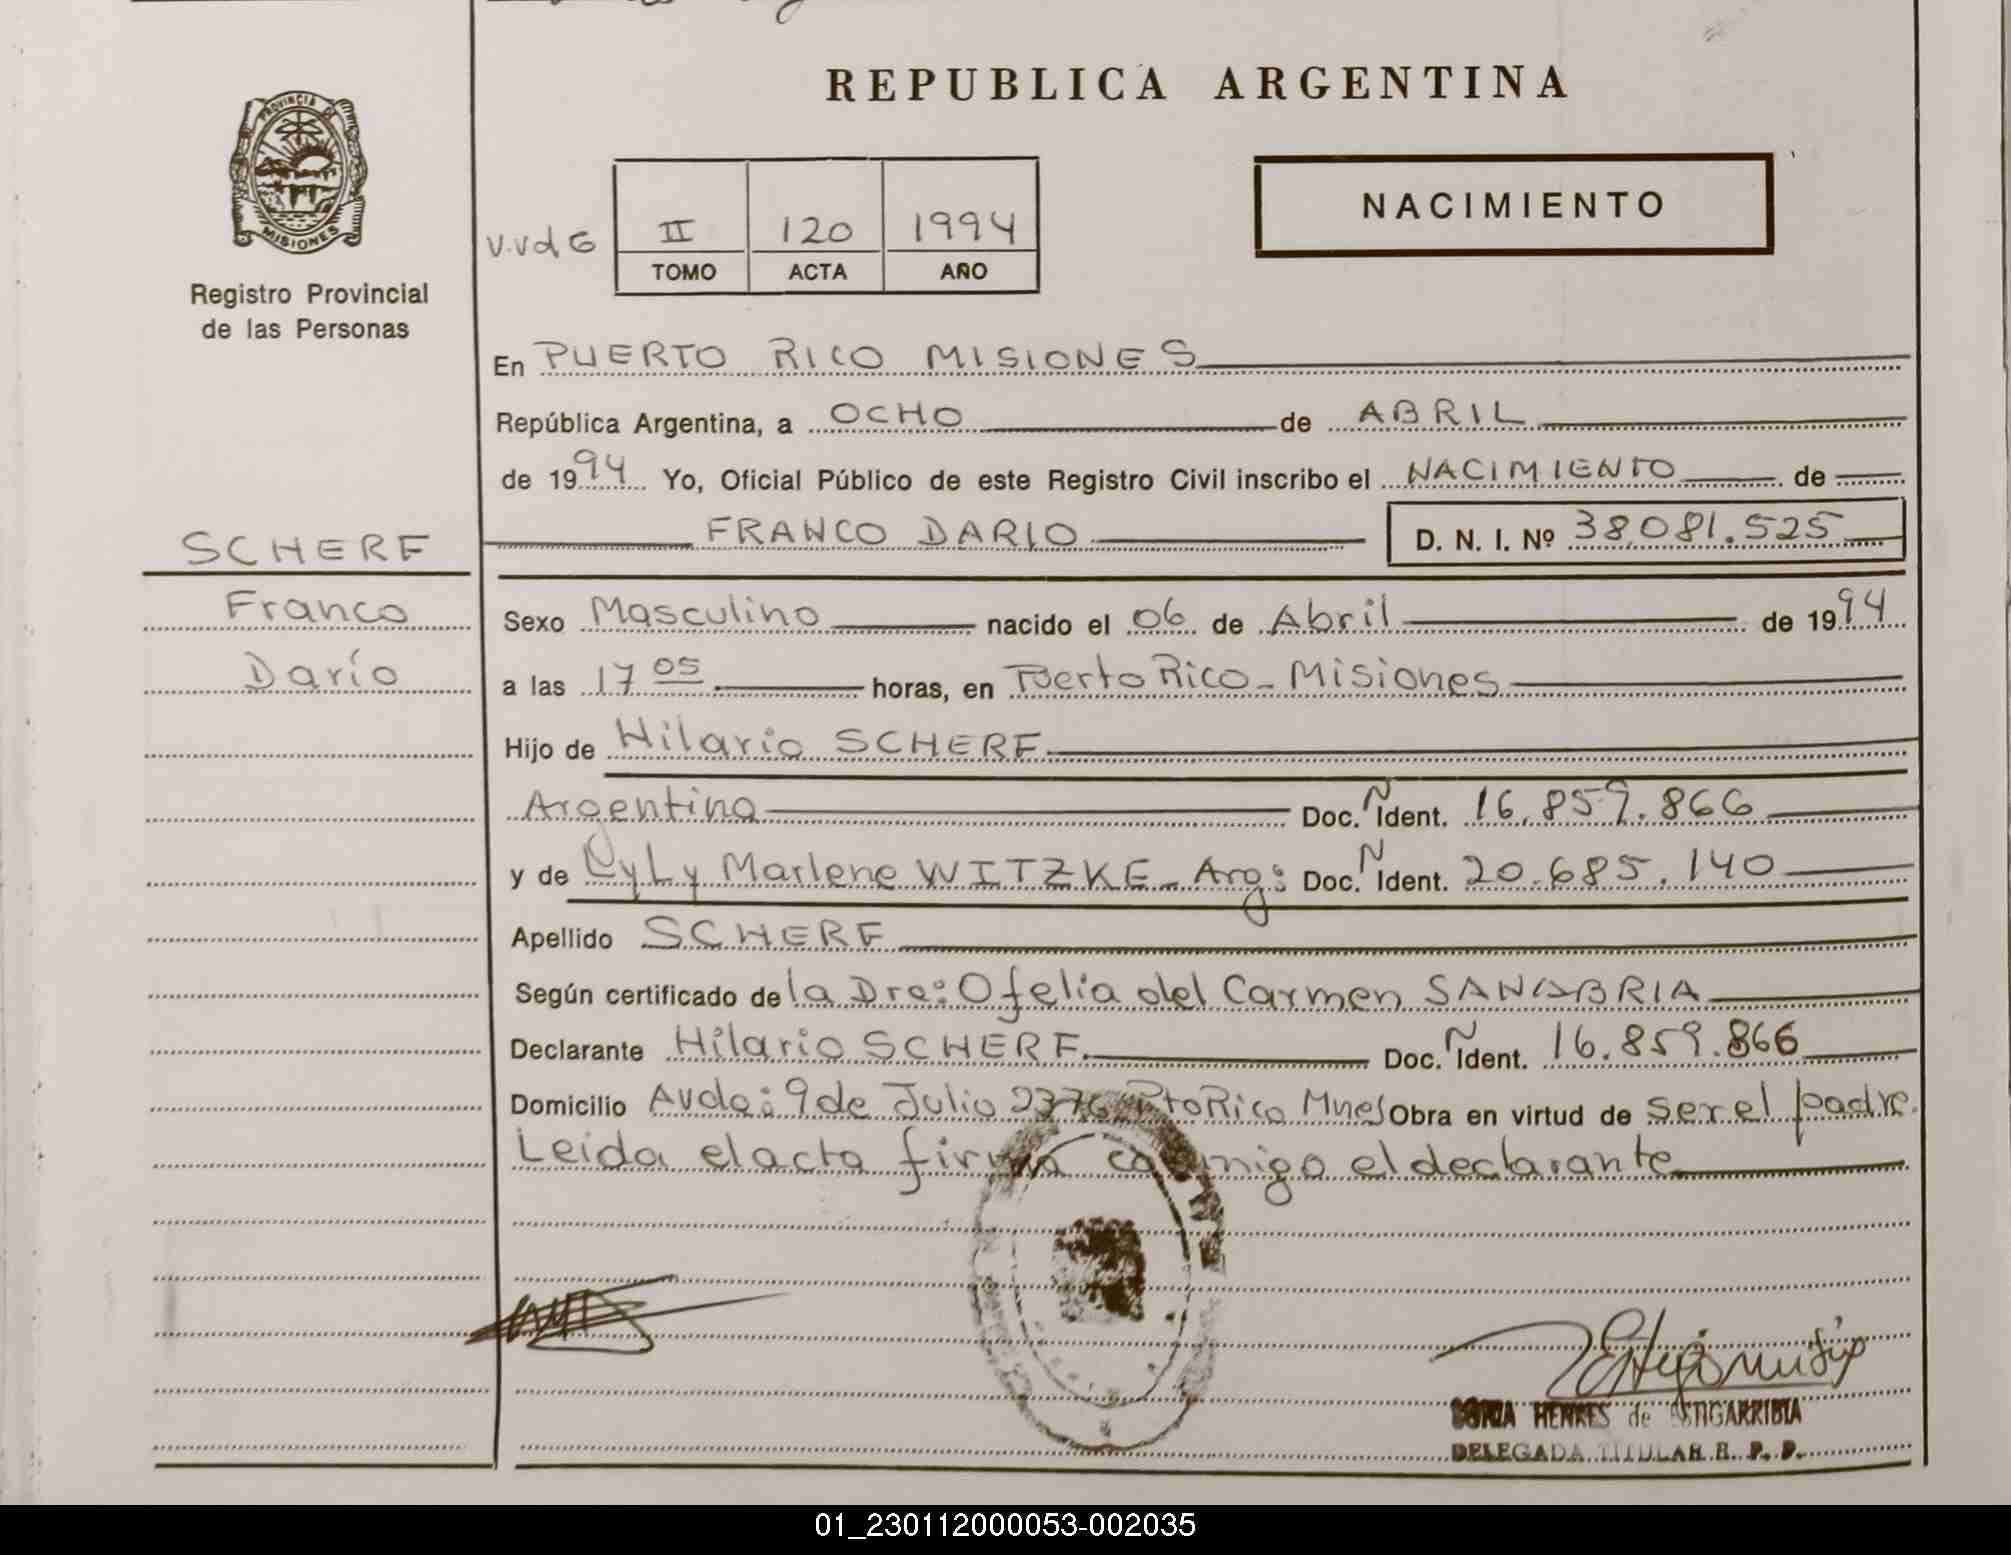 REPUBLICA ARGENTINA
PROVINCIA DE
MISIONES
Registro Provincial
de las Personas
NACIMIENTO
V.VdG
II 120 1994
TOMO ACTA AÑO
En PUERTO RICO MISIONES
República Argentina, a OCHO de ABRIL
de 1994 Yo, Oficial Público de este Registro Civil inscribo el NACIMIENTO de
FRANCO DARIO D. N. I. Nº 38.081.525
SCHERF
Franco
Darío
Sexo Masculino nacido el 06 de Abril de 1994
a las 17 05 horas, en Puerto Rico - Misiones
Hijo de Hilario SCHERF
Argentina Doc. N Ident. 16.859.866
y de LyLy Marlene WITZKE - Arg: Doc. N Ident. 20.685.140
Apellido SCHERF
Según certificado de la Dra: Ofelia del Carmen SANABRIA
Declarante Hilario SCHERF Doc. N Ident. 16.859.866
Domicilio Avda: 9 de Julio 2376 Pto Rico Mnes Obra en virtud de ser el padre.
Leida el acta firma conmigo el declarante
SONIA HENKES de ESTIGARRIBIA
DELEGADA TITULAR R. P. P.
01_230112000053-002035